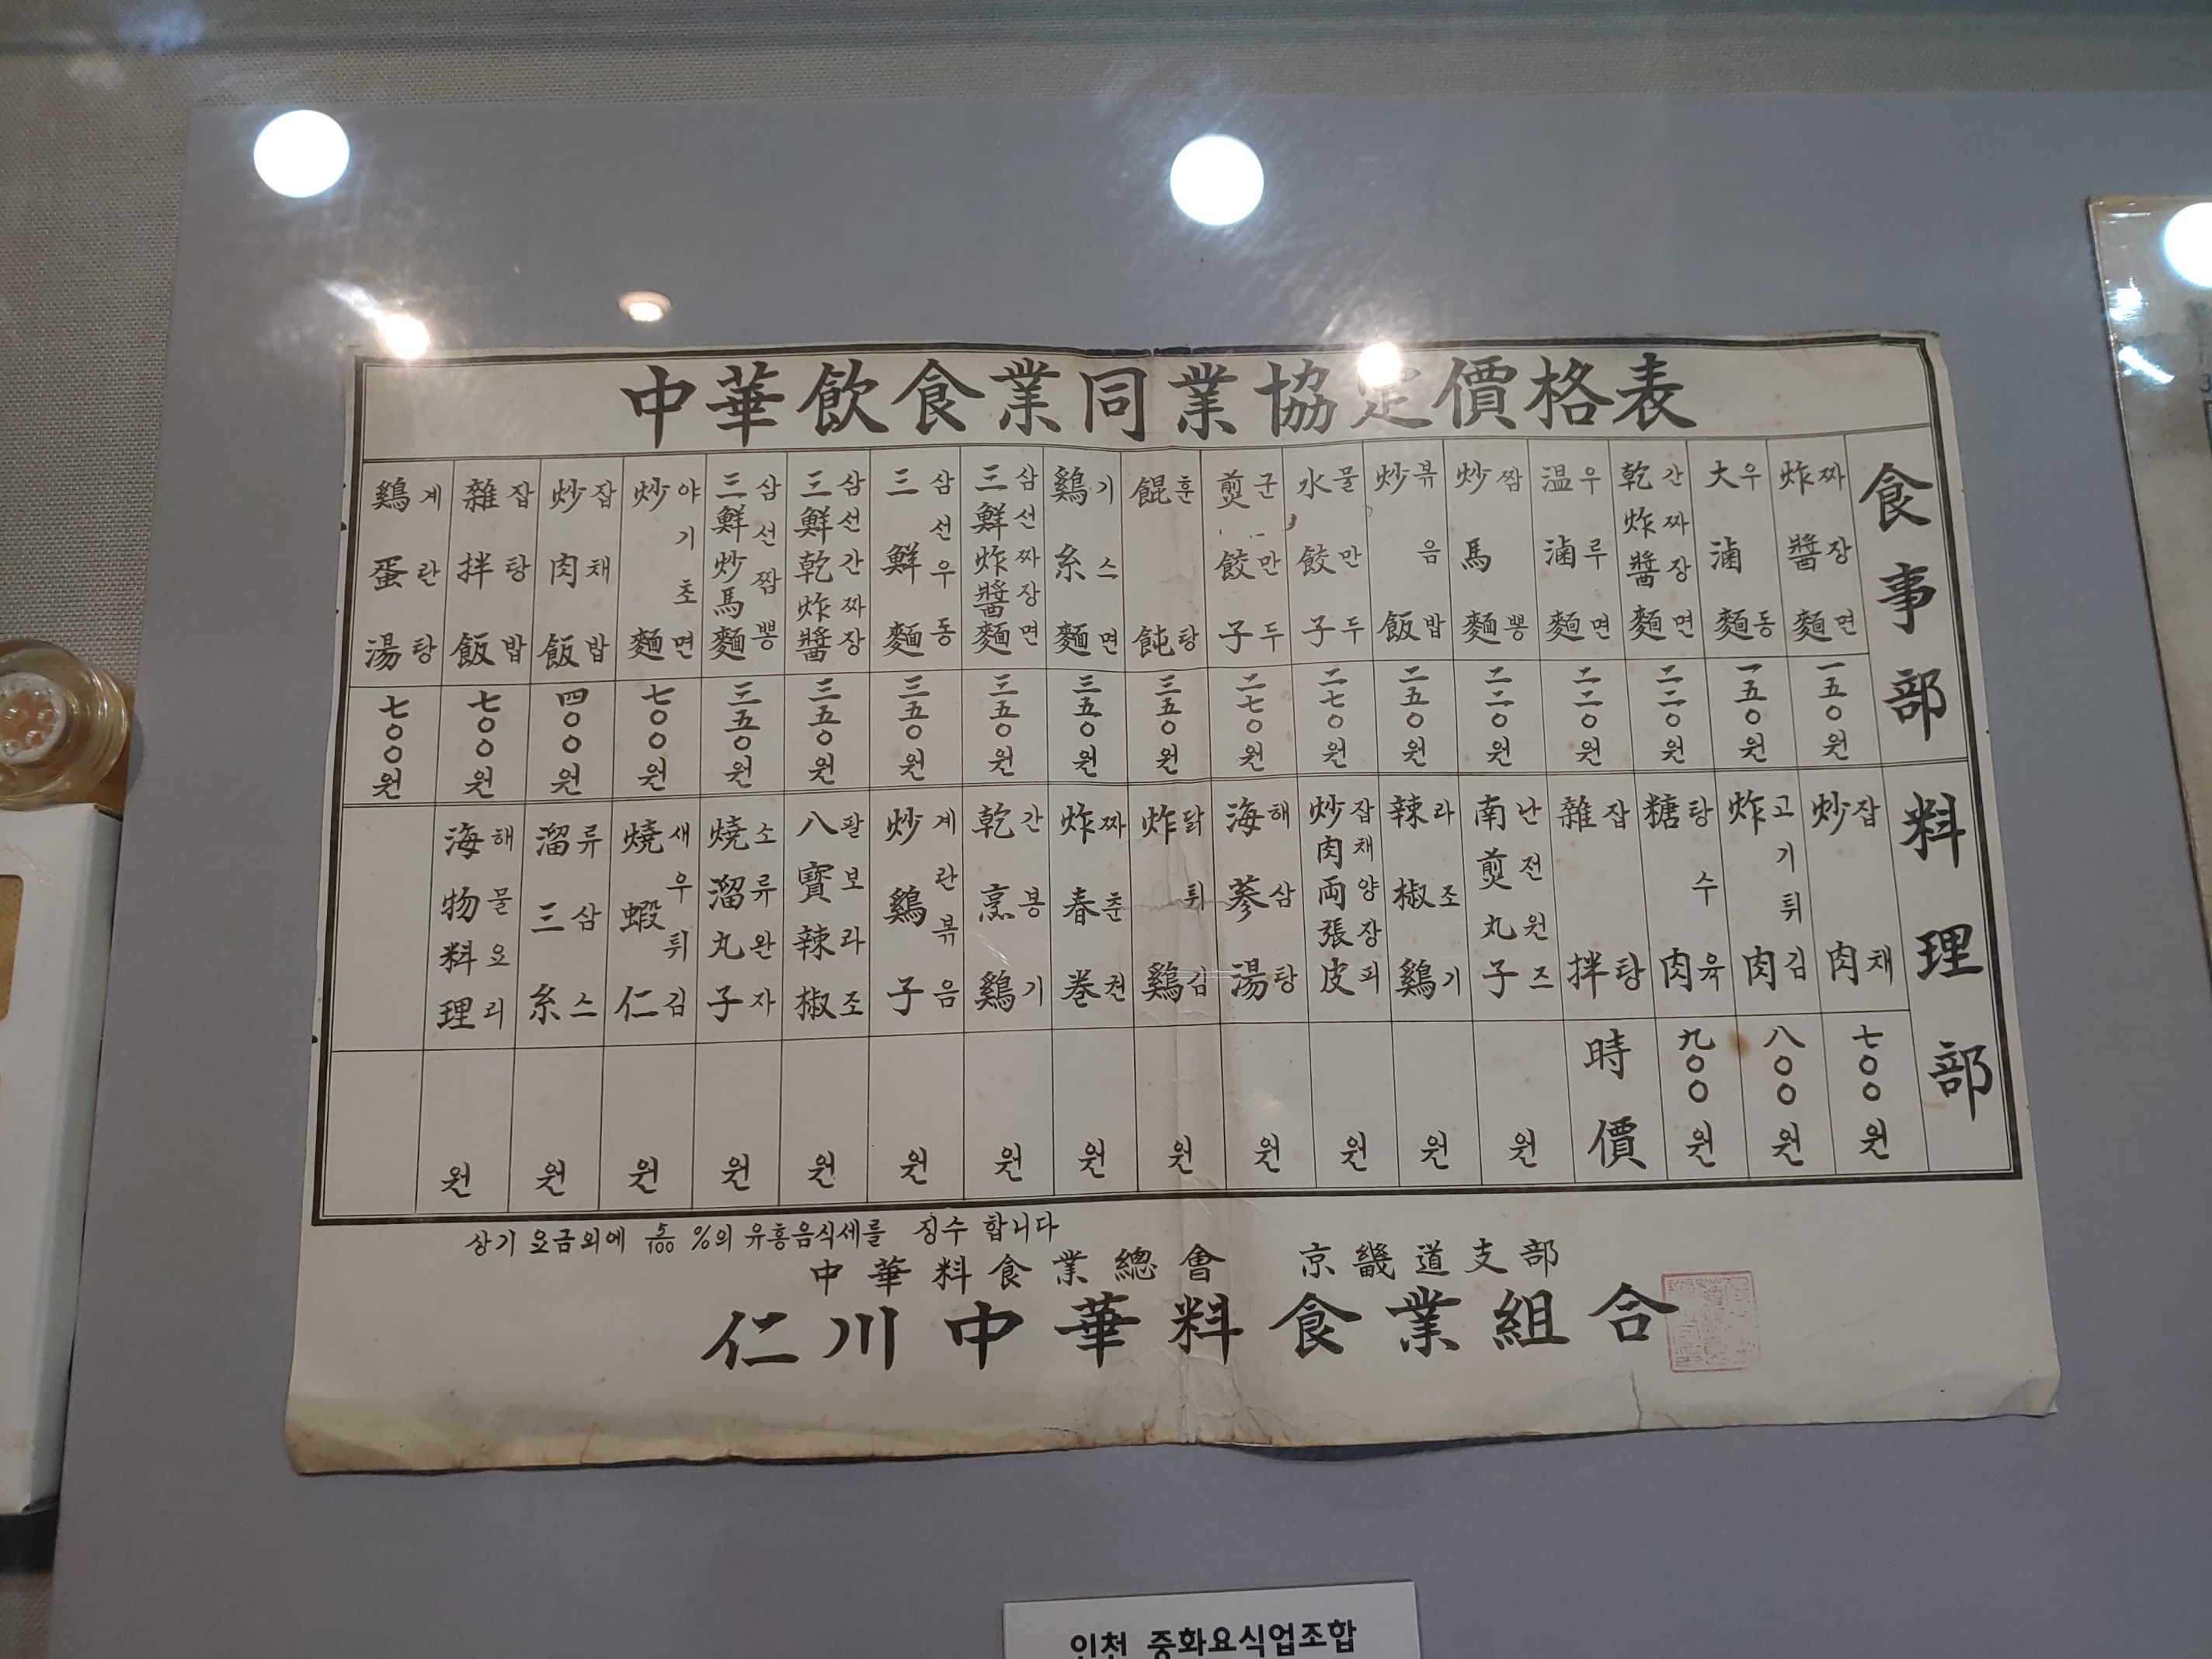 中華飲食業同業協定價格表
食事部
炸醬麵 짜장면 一五〇원
大滷麵 우동 一五〇원
乾炸醬麵 간짜장면 二二〇원
温滷麵 우루면 二二〇원
炒馬麵 짬뽕 二二〇원
炒飯 볶음밥 二五〇원
水餃子 물만두 二七〇원
煎餃子 군만두 二七〇원
餛飩 훈탕 三五〇원
鷄糸麵 기스면 三五〇원
三鮮炸醬麵 삼선짜장면 三五〇원
三鮮麵 삼선우동 三五〇원
三鮮乾炸醬 삼선간짜장 三五〇원
三鮮炒馬麵 삼선짬뽕 三五〇원
炒麵 야기초면 七〇〇원
炒肉飯 잡채밥 四〇〇원
雜拌飯 잡탕밥 七〇〇원
鷄蛋湯 계란탕 七〇〇원
料理部
炒肉 잡채 七〇〇원
炸肉 고기튀김 八〇〇원
糖肉 탕수육 九〇〇원
雜拌 잡탕 時價
南煎丸子 난전원즈 원
辣椒鷄 라조기 원
炒肉両張皮 잡채양장피 원
海蔘湯 해삼탕 원
炸鷄 닭튀김 원
炸春巻 짜춘권 원
乾烹鷄 간봉기 원
炒鷄子 계란볶음 원
八寶辣椒 팔보라조 원
燒溜丸子 소류완자 원
燒蝦仁 새우튀김 원
溜三糸 류삼스 원
海物料理 해물요리 원
상기 요금외에 5/100 %의 유흥음식세를 징수 합니다
中華料食業總會 京畿道支部
仁川中華料食業組合
인천 중화요식업조합